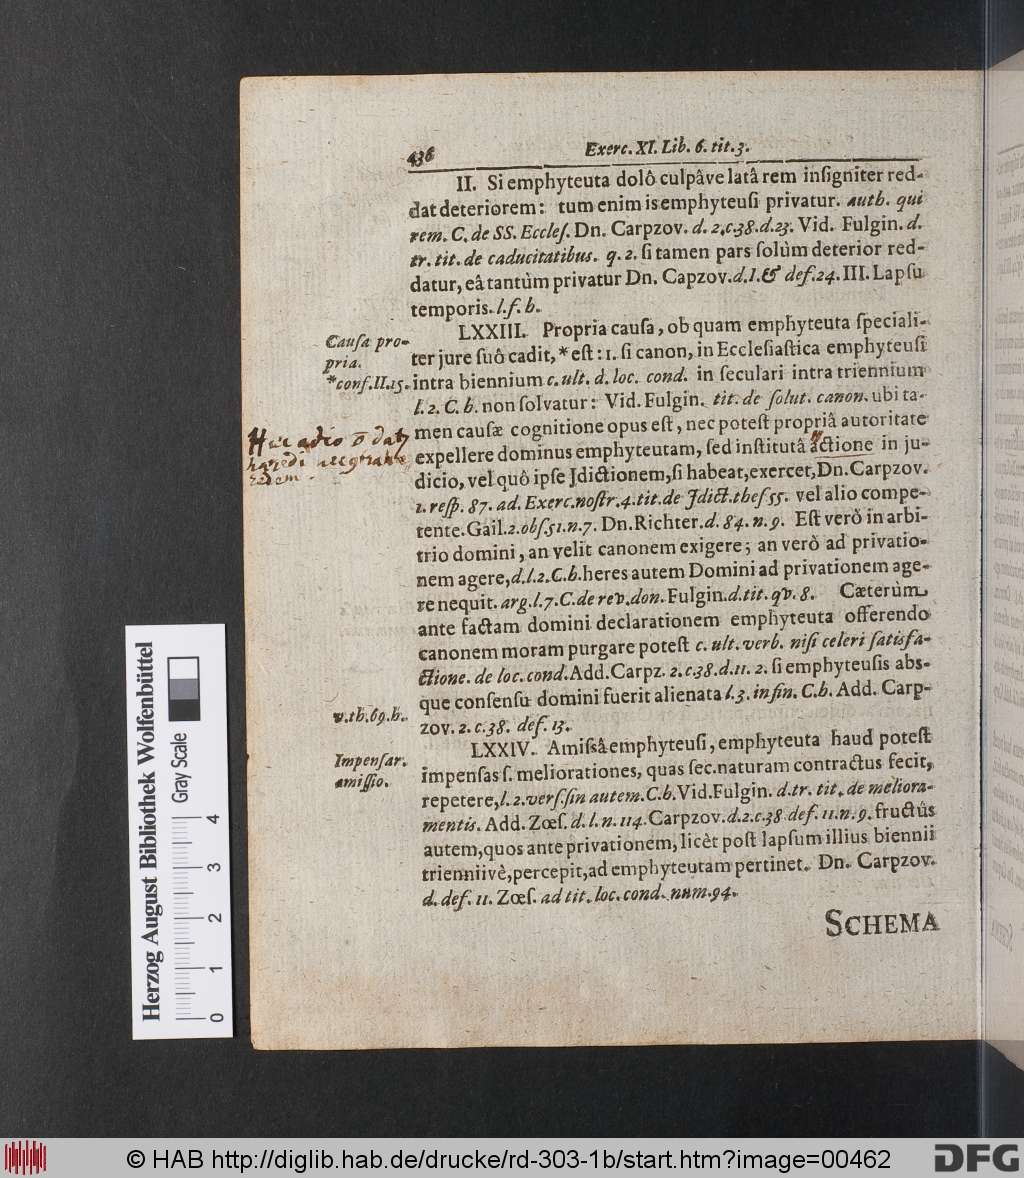 436 Exerc. XI. Lib. 6. tit. 3.
II. Si emphyteuta dolô culpâve latâ rem inſigniter red-
dat deteriorem: tum enim is emphyteuſi privatur. auth. qui
rem. C. de SS. Eccleſ. Dn. Carpzov. d. 2. c. 38. d. 23. Vid. Fulgin. d.
tr. tit. de caducitatibus. q. 2. ſi tamen pars ſolùm deterior red-
datur, eâ tantùm privatur Dn. Capzov. d. l. & def. 24. III. Lapſu
temporis. l. f. h.
LXXIII. Propria cauſa, ob quam emphyteuta ſpeciali-
Cauſa pro-
pria.
*conf. II. 15.
ter jure ſuô cadit, * eſt: 1. ſi canon, in Eccleſiaſtica emphyteuſi
intra biennium c. ult. d. loc. cond. in ſeculari intra triennium
l. 2. C. h. non ſolvatur: Vid. Fulgin. tit. de ſolut. canon. ubi ta-
men cauſæ cognitione opus eſt, nec poteſt propriâ autoritate
expellere dominus emphyteutam, ſed inſtitutâ actione in ju-
dicio, vel quô ipſe Jdictionem, ſi habeat, exercet, Dn. Carpzov.
1. reſp. 87. ad. Exerc. noſtr. 4. tit. de Jdict. theſ 55. vel alio compe-
tente. Gail. 2. obſ. 51. n. 7. Dn. Richter. d. 84. n. 9. Eſt verò in arbi-
trio domini, an velit canonem exigere; an verò ad privatio-
nem agere, d. l. 2. C. h. heres autem Domini ad privationem age-
re nequit. arg. l. 7. C. de rev. don. Fulgin. d. tit. qv. 8. Cæterùm
ante factam domini declarationem emphyteuta offerendo
canonem moram purgare poteſt c. ult. verb. niſi celeri ſatisfa-
ctione. de loc. cond. Add. Carpz. 2. c. 38. d. 11. 2. ſi emphyteuſis abs-
que conſenſu domini fuerit alienata l. 3. in fin. C. h. Add. Carp-
v. th. 69. h.
zov. 2. c. 38. def. 13.
LXXIV. Amiſsâ emphyteuſi, emphyteuta haud poteſt
Impenſar.
amiſſio.
impenſas ſ. meliorationes, quas ſec. naturam contractus fecit,
repetere, l. 2. verſ. ſin autem. C. h. Vid. Fulgin. d. tr. tit. de meliora-
mentis. Add. Zœſ. d. l. n. 114. Carpzov. d. 2. c. 38 def. 11. n. 9. fructûs
autem, quos ante privationem, licèt poſt lapſum illius biennii
trienniivè, percepit, ad emphyteutam pertinet. Dn. Carpzov.
d. def. 11. Zœſ. ad tit. loc. cond. num. 94.
SCHEMA
Herzog August Bibliothek Wolfenbüttel
Gray Scale
0 1 2 3 4
© HAB http://diglib.hab.de/drucke/rd-303-1b/start.htm?image=00462
DFG